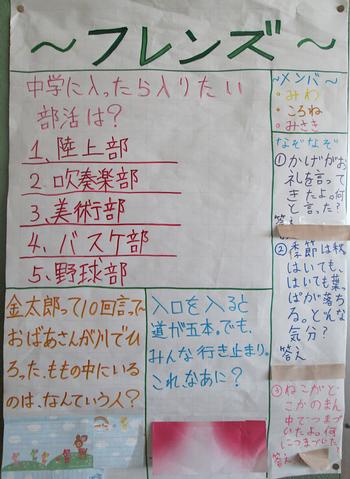 ～フレンズ～
中学に入ったら入りたい
部活は？
1、陸上部
2、吹奏楽部
3、美術部
4、バスケ部
5、野球部
~メンバ~
・みわ
・ころね
・みさき
なぞなぞ
①かげがお
礼を言って
きたよ。何
と言った？
答え
②季節は秋
はいても、
はいても葉っ
ぱが落ち
る。どんな
気分？
答え
③ねこがど
こかのまん
中でつまづ
いたよ。何
につまづいた？
答え
金太郎って10回言って~
おばあさんが川でひ
ろった、ももの中にいる
のは、なんていう人？
入口を入ると
道が五本。でも、
みんな行き止まり。
これ、なあに？